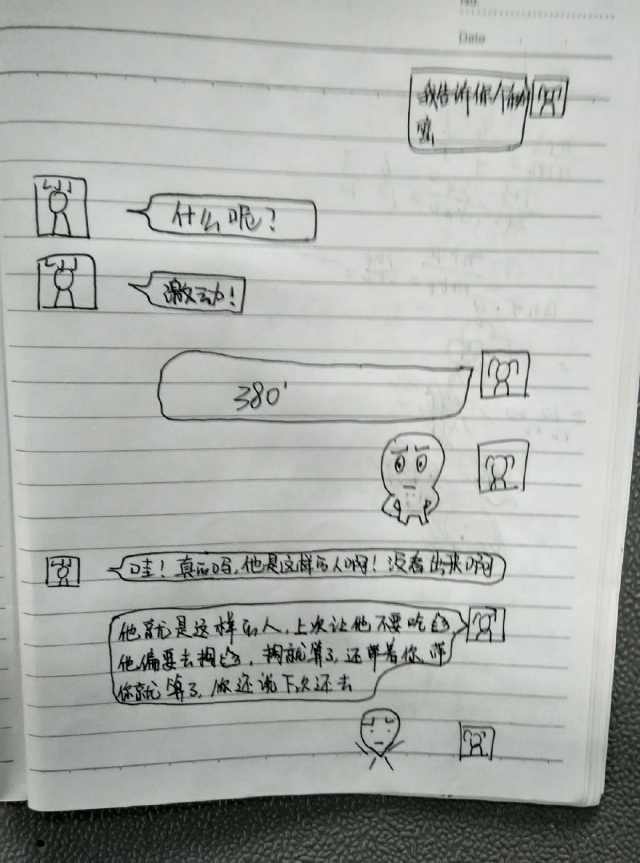 No.
Date
我告诉你个秘
密
什么呢？
激动！
380'
哇！真的吗，他是这样的人啊！没看出来啊
他就是这样的人，上次让他不要吃
他偏要去掏，掏就算了，还带着你，带
你就算了，你还说下次还去